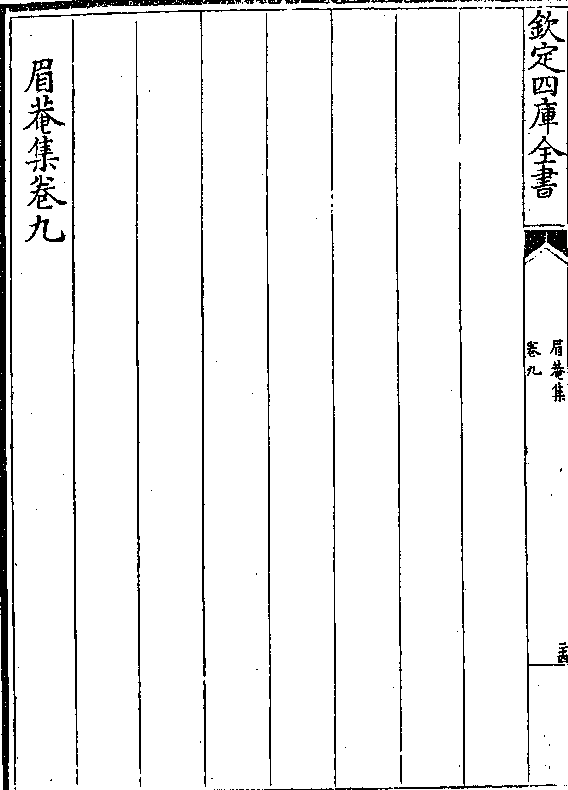 欽定四庫全書
眉菴集
卷九
二十四
眉菴集卷九